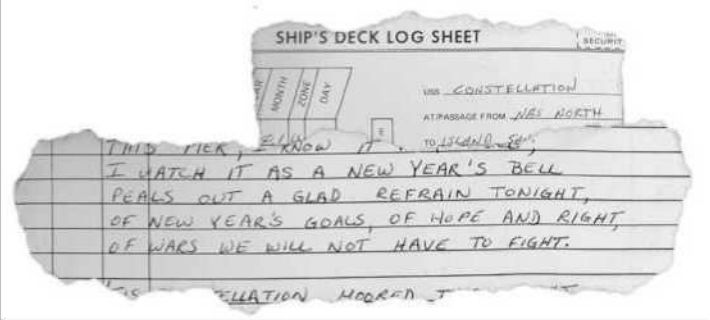 SHIP'S DECK LOG SHEET
SECURIT
MONTH
ZONE
DAY
USS CONSTELLATION
AT/PASSAGE FROM NAS NORTH
TO ISLAND
THIS PIER, I KNOW IT
I WATCH IT AS A NEW YEAR'S BELL
PEALS OUT A GLAD REFRAIN TONIGHT,
OF NEW YEAR'S GOALS, OF HOPE AND RIGHT,
OF WARS WE WILL NOT HAVE TO FIGHT.
ELLATION MOORED